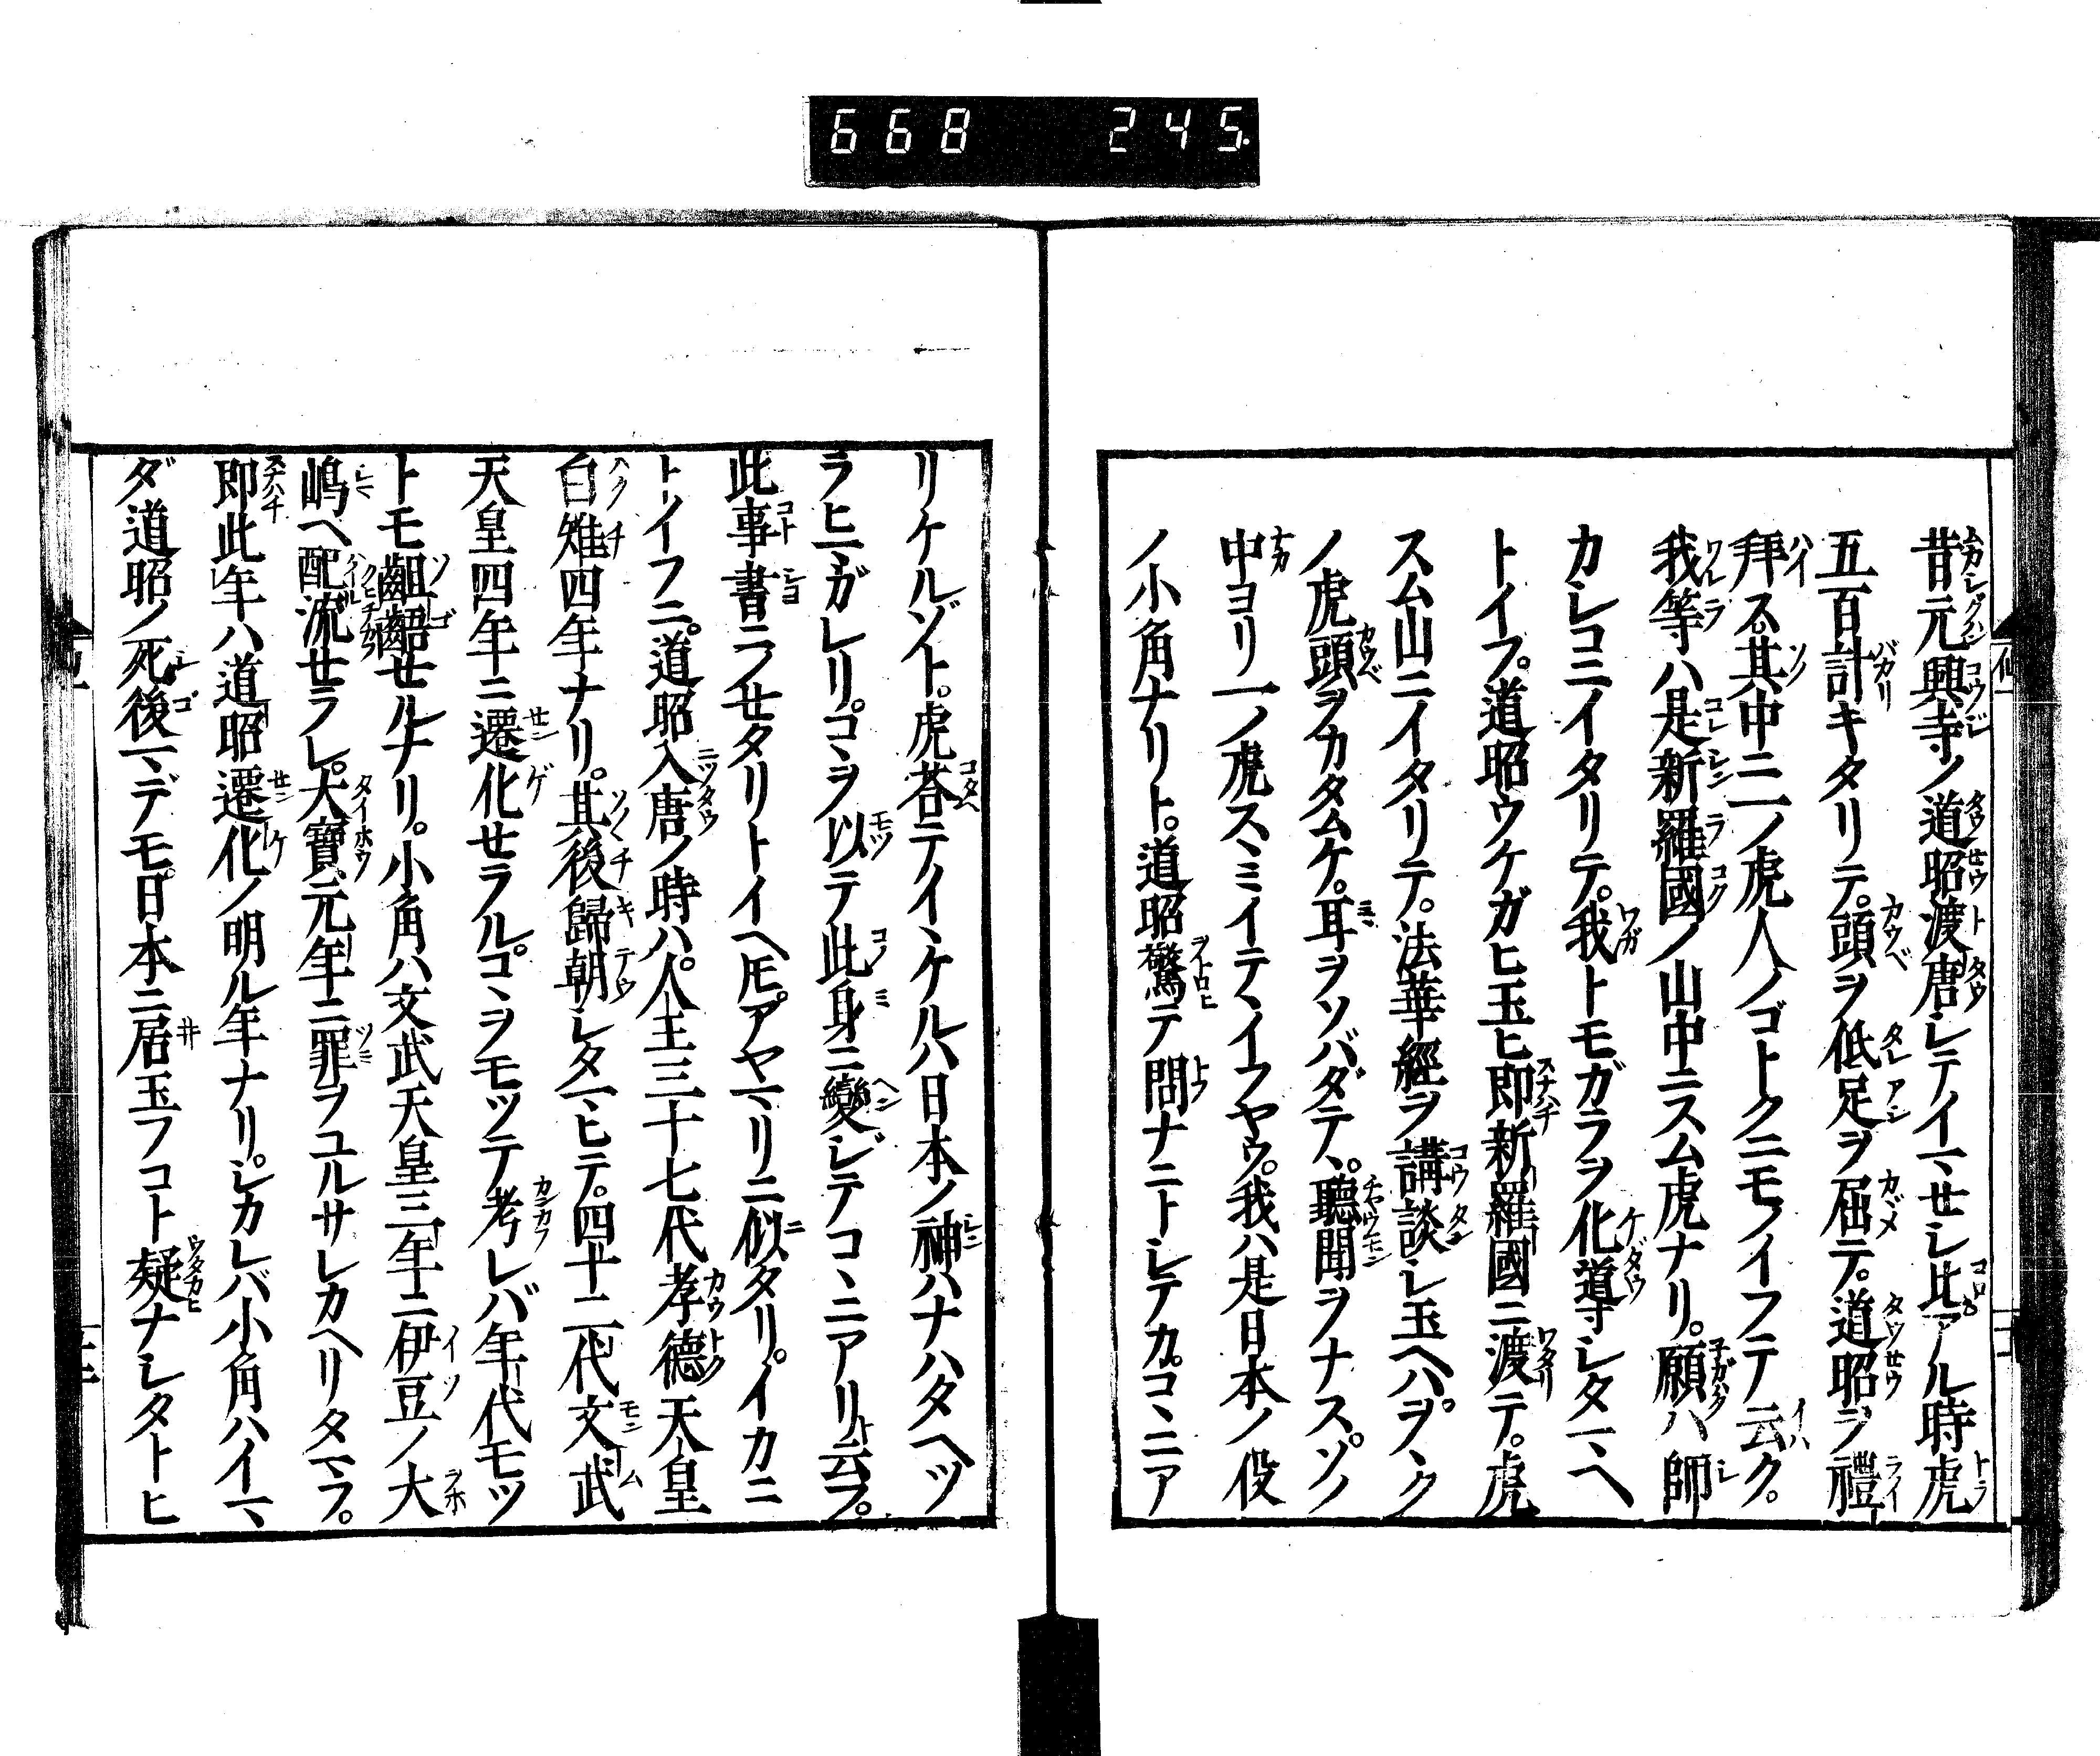 668 245.
昔元興寺ノ道昭渡唐シテイマセシ比アル時虎
五百計キタリテ。頭ヲ低足ヲ屈テ。道昭ヲ禮
拜ス。其中ニ一ノ虎人ノゴトクニモノイフテ云ク。
我等ハ是新羅國ノ山中ニスム虎ナリ。願ハ師
カシコニイタリテ。我トモガラヲ化道シタマヘ
トイフ。道昭ウケガヒ玉ヒ即新羅國ニ渡テ。虎
スム山ニイタリテ。法華經ヲ講談シ玉ヘハ。ヲヽク
ノ虎頭ヲカタムケ。耳ヲソバダテヽ。聽聞ヲナス。ソノ
中ヨリ一ノ虎スヽミイテヽイフヤウ。我ハ是日本ノ役
ノ小角ナリト。道昭驚テ問ナニトシテカ。コヽニア
リケルゾト。虎荅テイヽケルハ日本ノ神ハナハタヘツ
ラヒマガレリ。コヽヲ以テ此身ニ變ジテコヽニアリト云フ。
此事書ニノセタリトイヘ𪜈。アヤマリニ似タリ。イカニ
トイフニ。道昭入唐ノ時ハ。人王三十七代孝德天皇
白雉四年ナリ。其後歸朝シタマヒテ。四十二代文武
天皇四年ニ遷化セラル。コヽヲモツテ考レバ年代モツ
トモ齟齬セルナリ。小角ハ文武天皇三年ニ伊豆ノ大
嶋ヘ配流セラレ。大寶元年ニ罪ヲユルサレカヘリタマフ。
即此年ハ道昭遷化ノ明ル年ナリ。シカレバ小角ハイマ
ダ道昭ノ死後マデモ。日本ニ居玉フコト疑ナシタトヒ